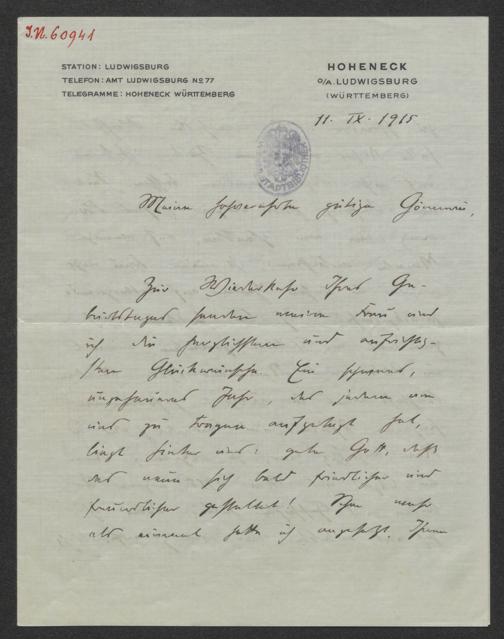 I.N. 60941
STATION: LUDWIGSBURG
TELEFON: AMT LUDWIGSBURG No 77
TELEGRAMME: HOHENECK WÜRTTEMBERG
HOHENECK
O/A. LUDWIGSBURG
(WÜRTTEMBERG)
11. IX. 1915
Meine hochverehrte gütige Gönnerin,
Zur Wiederkehr Ihres Ge-
burtstages senden meine Frau und
ich die herzlichsten und aufrichtig-
sten Glückwünsche. Ein schweres,
ungeheueres Jahr, das jedem von
uns zu tragen auferlegt hat,
liegt hinter uns: gebe Gott, daß
das neue sich bald friedlicher und
freundlicher gestaltet! Schon mehr
als einmal hatte ich angesetzt, Ihnen